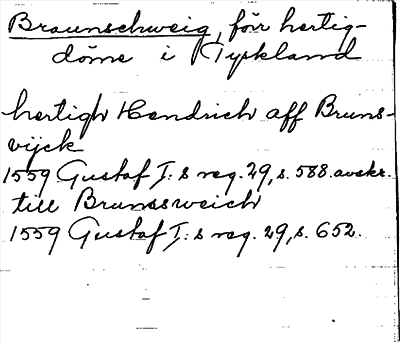 Braunschweig, förr hertig-
döme i Tyskland
hertigh Hendrich aff Bruns-
vijck
1559 Gustaf I:s reg. 29, s. 588. avskr.
till Brunssweich
1559 Gustaf I:s reg. 29, s. 652.